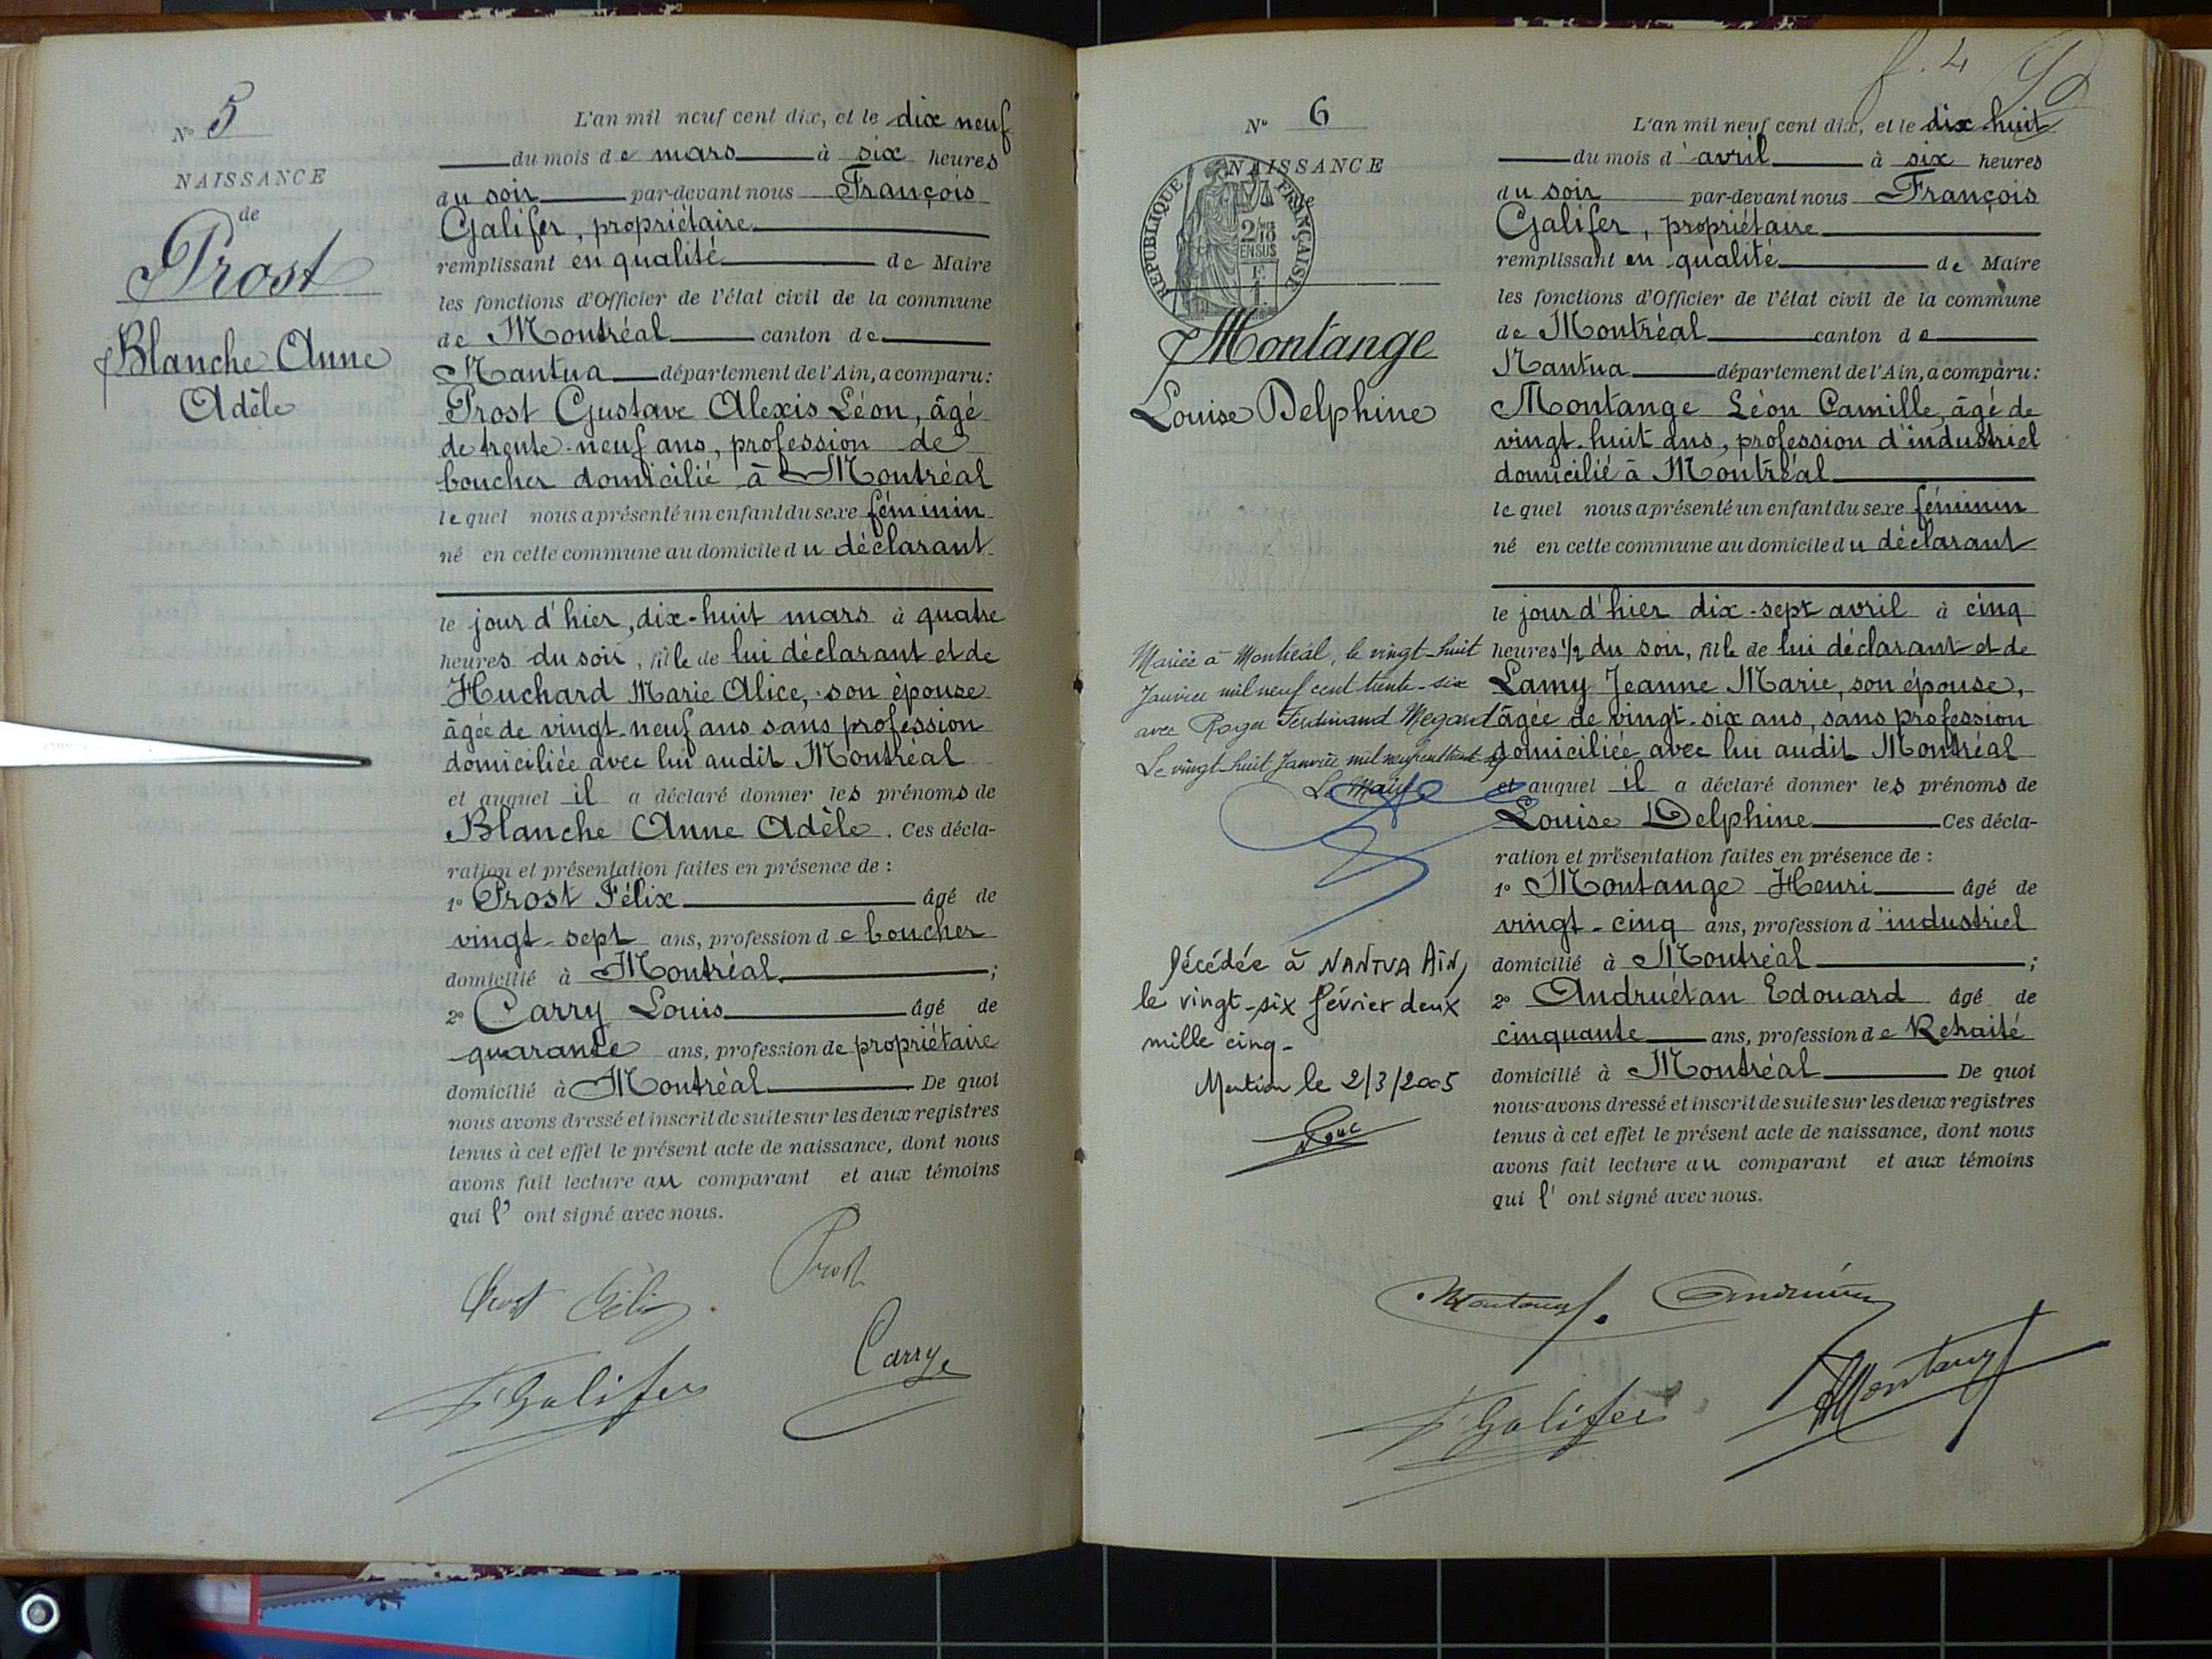 N° 5
NAISSANCE
de
Prost
Blanche Anne
Adèle
L'an mil neuf cent dix, et le dix neuf
du mois de mars à six heures
du soir par-devant nous François
Galifer, propriétaire
remplissant en qualité de Maire
les fonctions d'Officier de l'état civil de la commune
de Montréal canton de
Nantua département de l'Ain, a comparu:
Prost Gustave Alexis Léon, âgé
de trente-neuf ans, profession de
boucher domicilié à Montréal
lequel nous a présenté un enfant du sexe féminin
né en cette commune au domicile du déclarant
le jour d'hier, dix-huit mars à quatre
heures du soir, fille de lui déclarant et de
Huchard Marie Alice, son épouse
âgée de vingt-neuf ans sans profession
domiciliée avec lui audit Montréal
et auquel il a déclaré donner les prénoms de
Blanche Anne Adèle. Ces décla-
ration et présentation faites en présence de :
1° Prost Félix âgé de
vingt-sept ans, profession de boucher
domicilié à Montréal ;
2° Carry Louis âgé de
quarante ans, profession de propriétaire
domicilié à Montréal De quoi
nous avons dressé et inscrit de suite sur les deux registres
tenus à cet effet le présent acte de naissance, dont nous
avons fait lecture au comparant et aux témoins
qui l' ont signé avec nous.
Prost
Prost Félix
Carry
F Galifer
f. 4
N° 6
NAISSANCE
de
REPUBLIQUE FRANÇAISE
2/10 EN SUS
Montange
Louise Delphine
L'an mil neuf cent dix, et le dix-huit
du mois d'avril à six heures
du soir par-devant nous François
Galifer, propriétaire
remplissant en qualité de Maire
les fonctions d'Officier de l'état civil de la commune
de Montréal canton de
Nantua département de l'Ain, a comparu:
Montange Léon Camille, âgé de
vingt-huit ans, profession d'industriel
domicilié à Montréal
lequel nous a présenté un enfant du sexe féminin
né en cette commune au domicile du déclarant
le jour d'hier dix-sept avril à cinq
heures 1/2 du soir, fille de lui déclarant et de
Lamy Jeanne Marie, son épouse,
âgée de vingt-six ans, sans profession
domiciliée avec lui audit Montréal
et auquel il a déclaré donner les prénoms de
Louise Delphine Ces décla-
ration et présentation faites en présence de :
1° Montange Henri âgé de
vingt-cinq ans, profession d'industriel
domicilié à Montréal ;
2° Andruétan Edouard âgé de
cinquante ans, profession de Retraité
domicilié à Montréal De quoi
nous avons dressé et inscrit de suite sur les deux registres
tenus à cet effet le présent acte de naissance, dont nous
avons fait lecture au comparant et aux témoins
qui l' ont signé avec nous.
Mariée à Montréal, le vingt-huit
Janvier mil neuf cent trente-six
avec Roger Ferdinand Megard
Le vingt-huit Janvier mil neuf cent trente
Le Maire
Décédée à NANTUA AIN,
le vingt-six février deux
mille cinq-
Mention le 2/3/2005
Montange
F Galifer
Montange